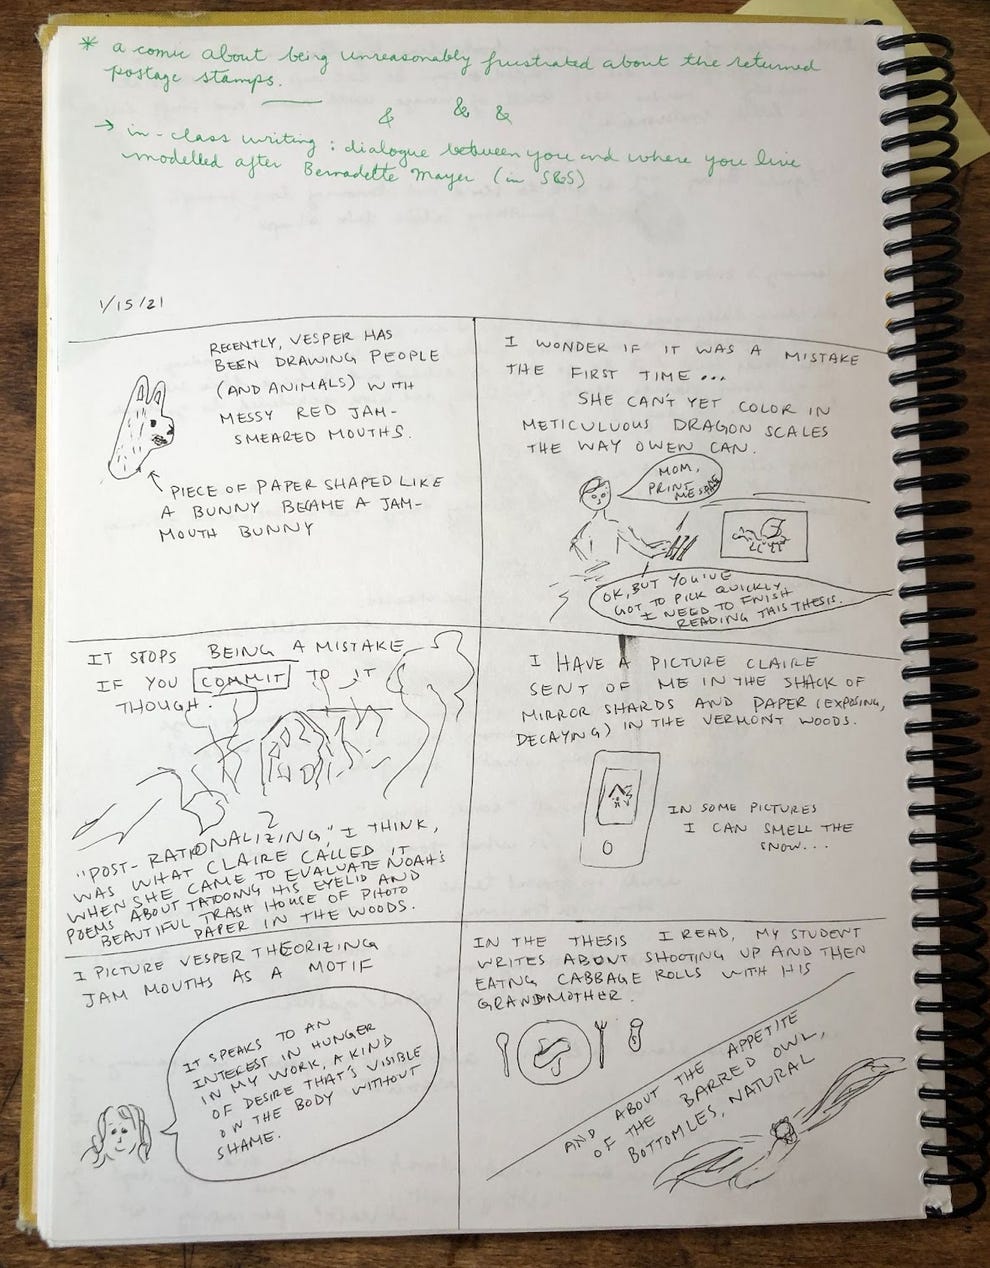 * a comic about being unreasonably frustrated about the returned
postage stamps.
& & &
→ in-class writing: dialogue between you and where you live
modelled after Bernadette Mayer (in S&S)
1/15/21
RECENTLY, VESPER HAS
BEEN DRAWING PEOPLE
(AND ANIMALS) WITH
MESSY RED JAM-
SMEARED MOUTHS.
PIECE OF PAPER SHAPED LIKE
A BUNNY BECAME A JAM-
MOUTH BUNNY
I WONDER IF IT WAS A MISTAKE
THE FIRST TIME...
SHE CAN'T YET COLOR IN
METICULUOUS DRAGON SCALES
THE WAY OWEN CAN.
MOM,
PRINT
ME
OK, BUT YOU'VE
GOT TO PICK QUICKLY
I NEED TO FINISH
READING THIS THESIS.
IT STOPS BEING A MISTAKE
IF YOU COMMIT TO IT
THOUGH.
"POST-RATIONALIZING," I THINK,
WAS WHAT CLAIRE CALLED IT
WHEN SHE CAME TO EVALUATE NOAH'S
POEMS ABOUT TATOONG HIS EYELID AND
BEAUTIFUL TRASH HOUSE OF PHOTO
PAPER IN THE WOODS.
I HAVE A PICTURE CLAIRE
SENT OF ME IN THE SHACK OF
MIRROR SHARDS AND PAPER (EXPOSING,
DECAYING) IN THE VERMONT WOODS.
IN SOME PICTURES
I CAN SMELL THE
SNOW...
I PICTURE VESPER THEORIZING
JAM MOUTHS AS A MOTIF
IT SPEAKS TO AN
INTEREST IN HUNGER
IN MY WORK, A KIND
OF DESIRE THAT'S VISIBLE
ON THE BODY WITHOUT
SHAME.
IN THE THESIS I READ, MY STUDENT
WRITES ABOUT SHOOTING UP AND THEN
EATNG CABBAGE ROLLS WITH HIS
GRANDMOTHER.
S
AND ABOUT THE APPETITE
OF THE BARRED OWL,
BOTTOMLES, NATURAL